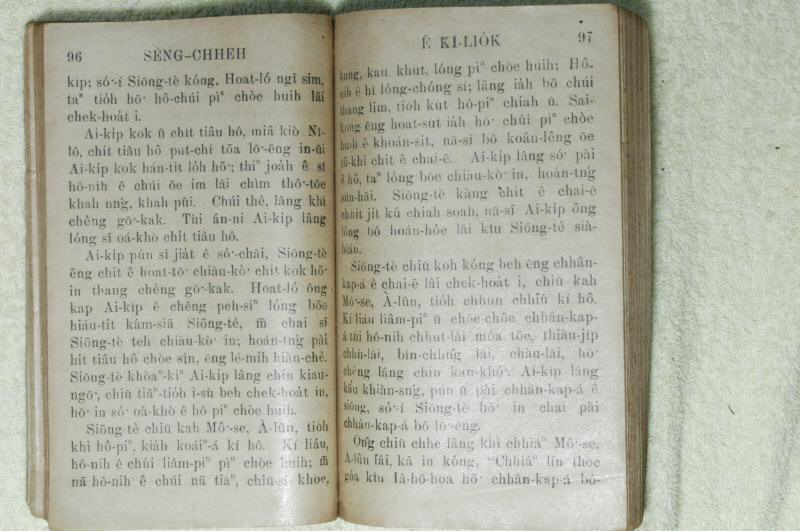 96
SÈNG-CHHEH
kíp; só͘-í Siōng-tè kóng, Hoat-ló ngī sim,
taⁿ tio̍h hō͘ hô-chúi pìⁿ chòe huih lâi
chek-hoa̍t i.
Ai-ki̍p kok ū chi̍t tiâu hô, miâ kiò Nî-
lô, chit tiâu hô put-chí tōa lō͘-ēng in-ūi
Ai-ki̍p kok hán-tit lo̍h hō͘; thiⁿ joa̍h ê sî
hô-nih ê chúi ōe im lâi chìm thô͘-tōe
khah nńg, khah pûi. Chúi thè, lâng khì
chèng gō͘-kak. Tùi án-ni Ai-ki̍p lâng
lóng sī oá-khò chit tiâu hô.
Ai-ki̍p pún sī jia̍t ê só͘-chāi, Siōng-tè
ēng chit ê hoat-tō͘ chiàu-kò͘ chit kok hō͘
in thang chèng gō͘-kak. Hoat-ló ông
kap Ai-ki̍p ê chèng peh-sìⁿ lóng bōe
hiáu-tit kám-siā Siōng-tè, m̄ chai sī
Siōng-tè teh chiàu-kò͘ in; hoán-tńg pài
hit tiâu hô chòe sîn, ēng lé-mih hiàn-chè.
Siōng-tè khòaⁿ-kìⁿ Ai-ki̍p lâng chin kiau-
ngō͘, chiū tiāⁿ-tio̍h ì-sù beh chek-hoa̍t in,
hō͘ in só͘ oá-khò ê hô pìⁿ chòe huih.
Siōng-tè chiū kah Mô͘-se, À-lûn, tio̍h
khì hô-piⁿ, kia̍h koáiⁿ-á kí hô. Kí liáu,
hô-nih ê chúi liâm-piⁿ pìⁿ chòe huih; m̄
nā hô-nih ê chúi nā tiāⁿ, chiū-sī khoe,
Ê KÌ-LIO̍K
97
kang, kau, khut, lóng pìⁿ chòe huih; Hô-
nih ê hî lóng-chóng sí; lâng ia̍h bô chúi
thang lim, tio̍h kut hô-piⁿ chiah ū. Sai-
kong ēng hoat-su̍t ia̍h hō͘ chúi pìⁿ chòe
huih ê khoán-sit, nā-sī bô koân-lêng ōe
tû-khì chit ê chai-ē. Ai-ki̍p lâng só͘ pài
ê hô, taⁿ lóng bōe chiàu-kò͘ in, hoán-tńg
sún-hāi. Siōng-tè kàng chit ê chai-ē
chhit ji̍t kú chiah soah, nā-sī Ai-ki̍p ông
lóng bô hoán-hóe lâi kiû Siōng-tè sià-
bián.
Siōng-tè chiū koh kóng beh ēng chhân-
kap-á ê chai-ē lâi chek-hoa̍t i, chiū kah
Mô͘-se, À-lûn, tio̍h chhun chhiú kí hô.
Kí liáu liâm-piⁿ ū chōe-chōe chhân-kap-
á tùi hô-nih chhut-lâi móa tōe, thiàu-ji̍p
chhù-lāi, bîn-chhn̂g lāi, chàu-lāi, hō͘
chèng lâng chin kan-khó͘. Ai-ki̍p lâng
kāu khiàn-sńg, pún ū pài chhân-kap-á ê
siông, só͘-í Siōng-tè hō͘ in chai pài
chhân-kap-á bô lō͘-ēng.
Ông chiū chhe lâng khì chhiáⁿ Mô͘-se,
À-lûn lâi, kā in kóng, “Chhiáⁿ lín thòe
góa kiû Iâ-hô-hoa hō͘ chhân-kap-á bô-